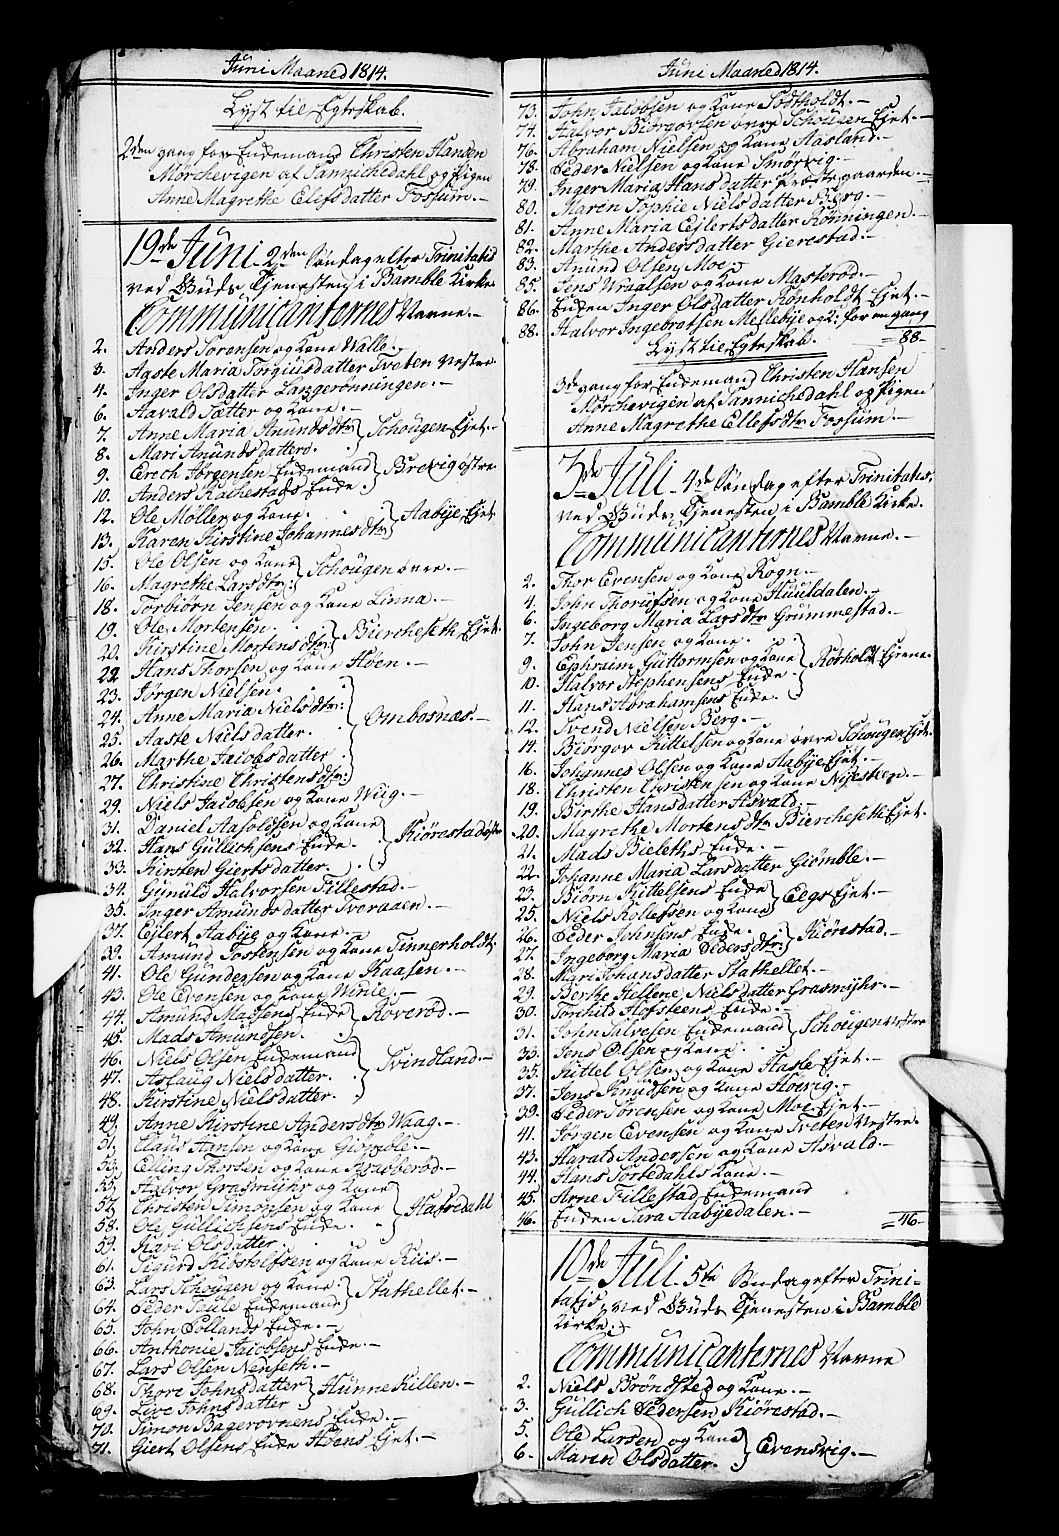 Juni Maaned 1814.
Lyst til Egteskab.
2den gang for Ludemand Christen Hansen
Mørchevigen af Sannichedahl og Pigen
Anne Magrethe Elefsdatter Fossum.-
19de Juni 2den Søndag efter Trinitatis
ved Guds Tjenesten i Bamble Kirke
Communicanternes Navne.-
2. Anders Sørensen og Kone Valle.-
3. Aaste Maria Torgiusdatter Tveten vestre
4. Inger Olsdatter Langerønningen.-
6. Aavald Sætter og Kone.-
7. Anne Maria Amundsdtr } Schougen Ejet.-
8. Mari Amundsdatter.
9. Erich Jørgensen Ludemand } Brevig østre
10. Anders Rachestads Enke.
12. Ole Møller og Kone. } Aabye Ejet
13. Karen Kirstine Johannesdtr
15. Ole Olsen og Kone } Schougen øvre.-
16. Magrethe Larsdtr:
18. Torbiørn Jensen og Kone Linna.-
19. Ole Mortensen. } Biercheseth Ejet
20. Kirstine Mortensdtr:
22 Hans Thorsen og Kone Høen.-
23. Jørgen Nielsen.
24. Anne Maria Nielsdtr: } Ombosnæs.-
25. Aaste Nielsdatter.
26. Marthe Jacobsdatter
27. Christine Christensdtr:
29. Niels Jacobsen og Kone Wiig.-
31. Daniel Aasoldsen og Kone } Kiørestad
32. Hans Gullichsens Enke.
33. Kirsten Giertsdatter.
34. Gunuld Halvorsen Tillestad.-
35. Inger Amundsdatter Tveraaen.-
37. Ejlert Aabye og Kone.-
39. Amund Tostensen og Kone Tinnerholdt.
41. Ole Gundersen og Kone Kaasen.-
43. Ole Evensen og Kone Vinie.-
44. Amund Madsens Enke } Roverød.-
45. Mads Amundsen.
46. Niels Olsen Ludemand } Trindland.-
47. Aslaug Nielsdatter.
48. Kirstine Nielsdatter.
49. Anne Kirstine Andersdtr Waag.-
51. Claus Hansen og Kone Giømble.-
53. Elling Thorsen og Kone
55. Halvor Grasmyhr og Kone
57. Christen Simonsen og Kone } Hafredahl
58. Ole Gullichsens Enke.
59. Kari Olsdatter.
61. Sigurd Kiøstolfsen og Kone Riis.-
63. Lars Schougen og Kone. } Stathellet.-
64. Peder Teule Ludemand
65. John Pollands Enke.-
66. Anthonie Jacobsens Enke.-
67. Lars Olsen Nenseth.-
68. Thore Johnsdatter } Hunne Killen.-
69. Live Johnsdatter
70. Simon Bagerovnens Enke.-
71. Giert Olsens Enke Høens Ejet.-
Juni Maaned 1814.
73. John Jacobsen og Kone Rodtholdt.-
74. Halvor Biørgorsen øvre Schougen Ejet.-
76. Abraham Nielsen og Kone Aasland.-
78. Peder Nielsen og Kone Smörvig.-
79. Inger Maria Hansdatter Præstegaarden.-
80. Maren Sophie Nielsdatter Berg.-
81. Anne Maria Ejlertsdatter Rønningen.-
82. Marthe Andersdatter Gierestad.-
83. Amund Olsen Moe.-
85. Jens Wraalsen og Kone Masterød.-
86. Enken Inger Olsdatter Rønholdt Ejet.-
88. Halvor Ingebrotsen Mellebye og K: for en gang
=88-
Lyst til Egteskab.
3de gang for Ludemand Christen Hansen
Mörchevigen af Sannichedahl og Pigen
Anne Magrethe Ellefsdtr Fossum.-
3de Juli 4de Søndag efter Trinitatis,
ved Guds Tjenesten i Bamble Kirke.
Communicanternes Navne.-
2. Thor Evensen og Kone Rogn.-
4. John Thorufsen og Kone Huuldalen.-
6. Ingeborg Maria Larsdtr Grummestad.-
7. John Jensen og Kone.
9. Ephraim Guttormsen og Kone } Rotholdt Ejerne.
10. Halvor Stephensens Enke.
11. Hans Abrahamsens Enke.
12. Svend Nielsen Berg.-
14. Biørgor Kittelsen og Kone øvre Schougen Ejet.
16. Johannes Olsen og Kone Aabye Ejet.-
18. Christen Christensen og Kone Nyestuen.-
19. Birthe Hansdatter Asvald.-
20. Magrethe Mortensdtr Biercheseth Ejet.
21. Mads Bieleths Enke.-
22. Johanne Maria Larsdatter Giömble.-
23. Biørn Kittelsens Enke } Eegs Ejet.-
25. Niels Rollefsen og Kone
26. Peder Johnsens Enke. } Kiørestad.-
27. Ingeborg Maria Pedersdtr:
28. Mari Johansdatter Stathellet.-
29. Berthe Hellene Nielsdatter Grasmyhr.-
30. Torchild Hofsteens Enke.-
31. John Alvesen Ludemand } Schougen vestre
33. Jens Olsen og Kone.
35. Kittel Olsen og Kone Haaste Ejet.-
37. Jens Knudsen og Kone Høevig.-
39. Peder Sørensen og Kone Moe Ejet.-
41. Jørgen Evensen og Kone Tveten vestre.
43. Harald Andersen og Kone Asvald.-
44. Hans Tortedahls Kone.-
45. Arne Tillestad Ludemand
46. Enken Sara Aabyedalen.-
=46-
10de Juli 5te Søndag efter Trini-
tatis, ved Guds Tjenesten i Bamble
Kirke.
Communicanternes Navne
2. Niels Brøndsted og Kone.-
3. Gullich Pedersen Kiørestad.-
5. Ole Larsen og Kone } Evensvig.-
6. Maren Olsdatter.